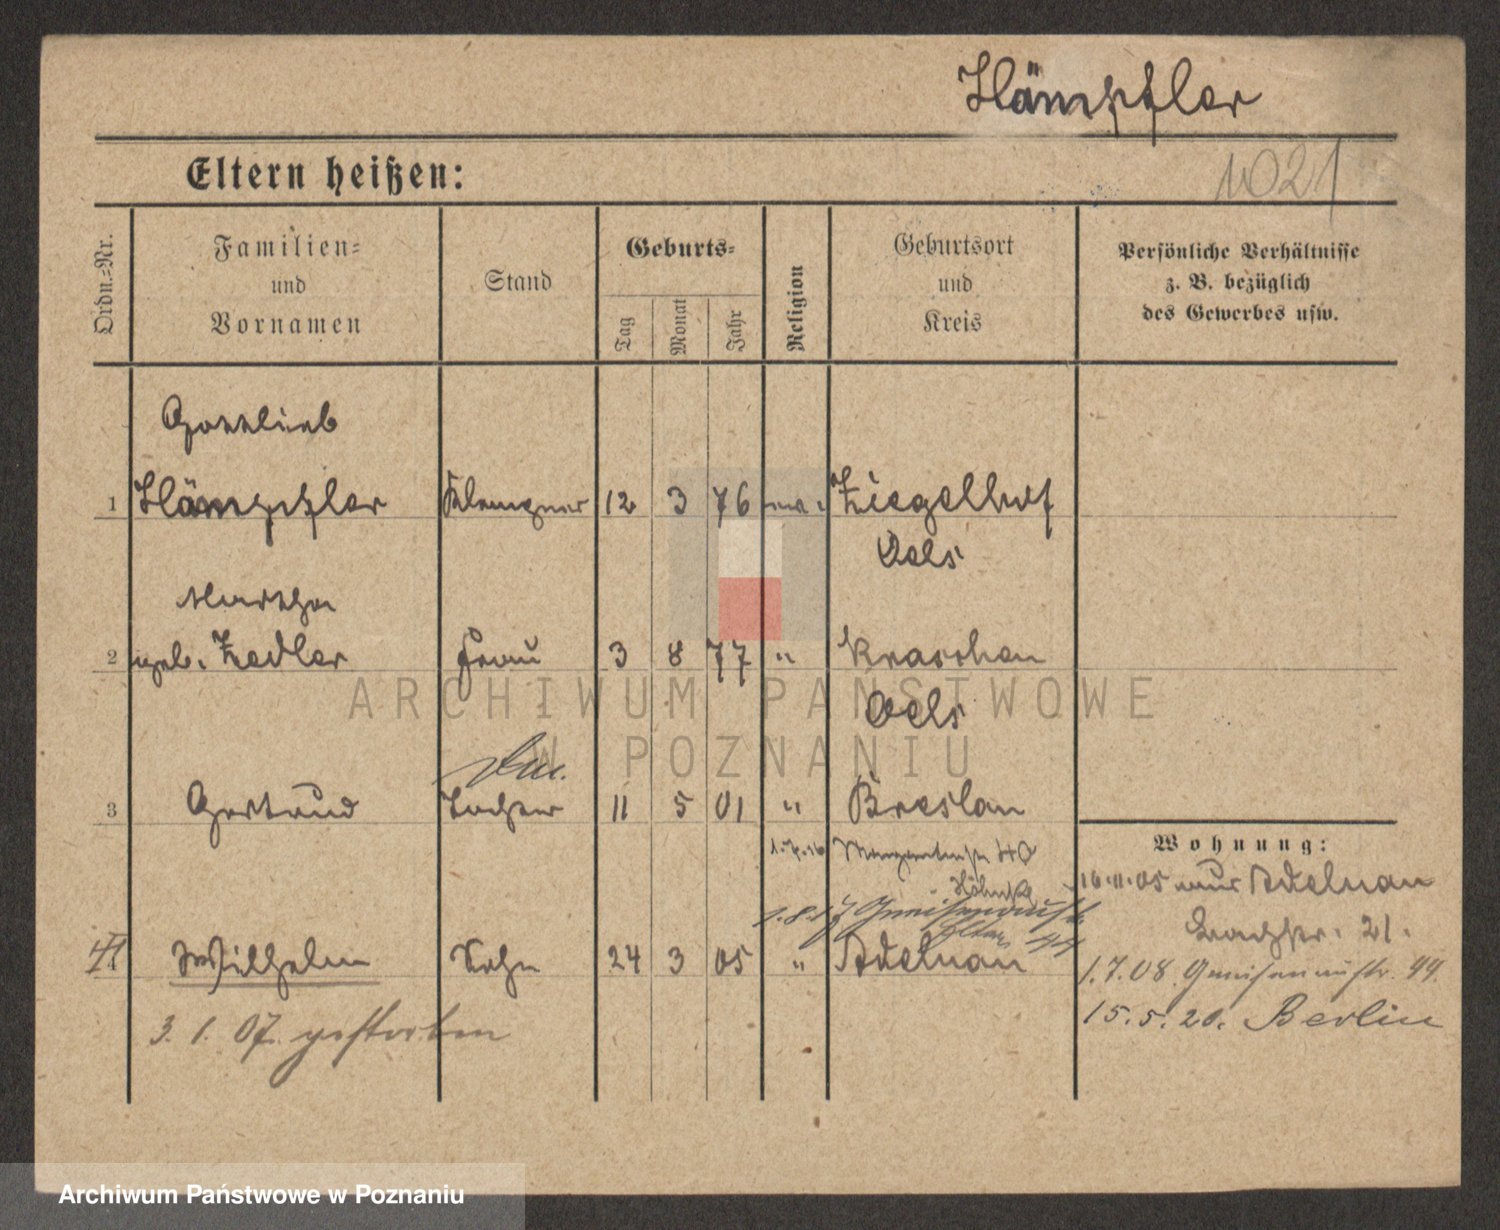 Hämpfler
1021
Eltern heißen:
Ordn.=Nr.
Familien=
und
Vornamen
Stand
Geburts=
Tag
Monat
Jahr
Religion
Geburtsort
und
Kreis
Persönliche Verhältnisse
z. B. bezüglich
des Gewerbes usw.
Gottlieb
1 Hämpfler Klempner 12 3 76 Ziegelhof
Oels
Martha
2 geb. Zedler Frau 3 8 77 " Kraschen
Oels
3 Gertrud Tochter 11 5 01 " Breslau
Wohnung:
40
16.11.05 Adelnau
21.
4 Wilhelm Sohn 24 3 05 " Adelnau
1.7.08. Gneisenaustr. 44.
3. 1. 07. gestorben
15.5.20. Berlin
ARCHIWUM PAŃSTWOWE
W POZNANIU
Archiwum Państwowe w Poznaniu